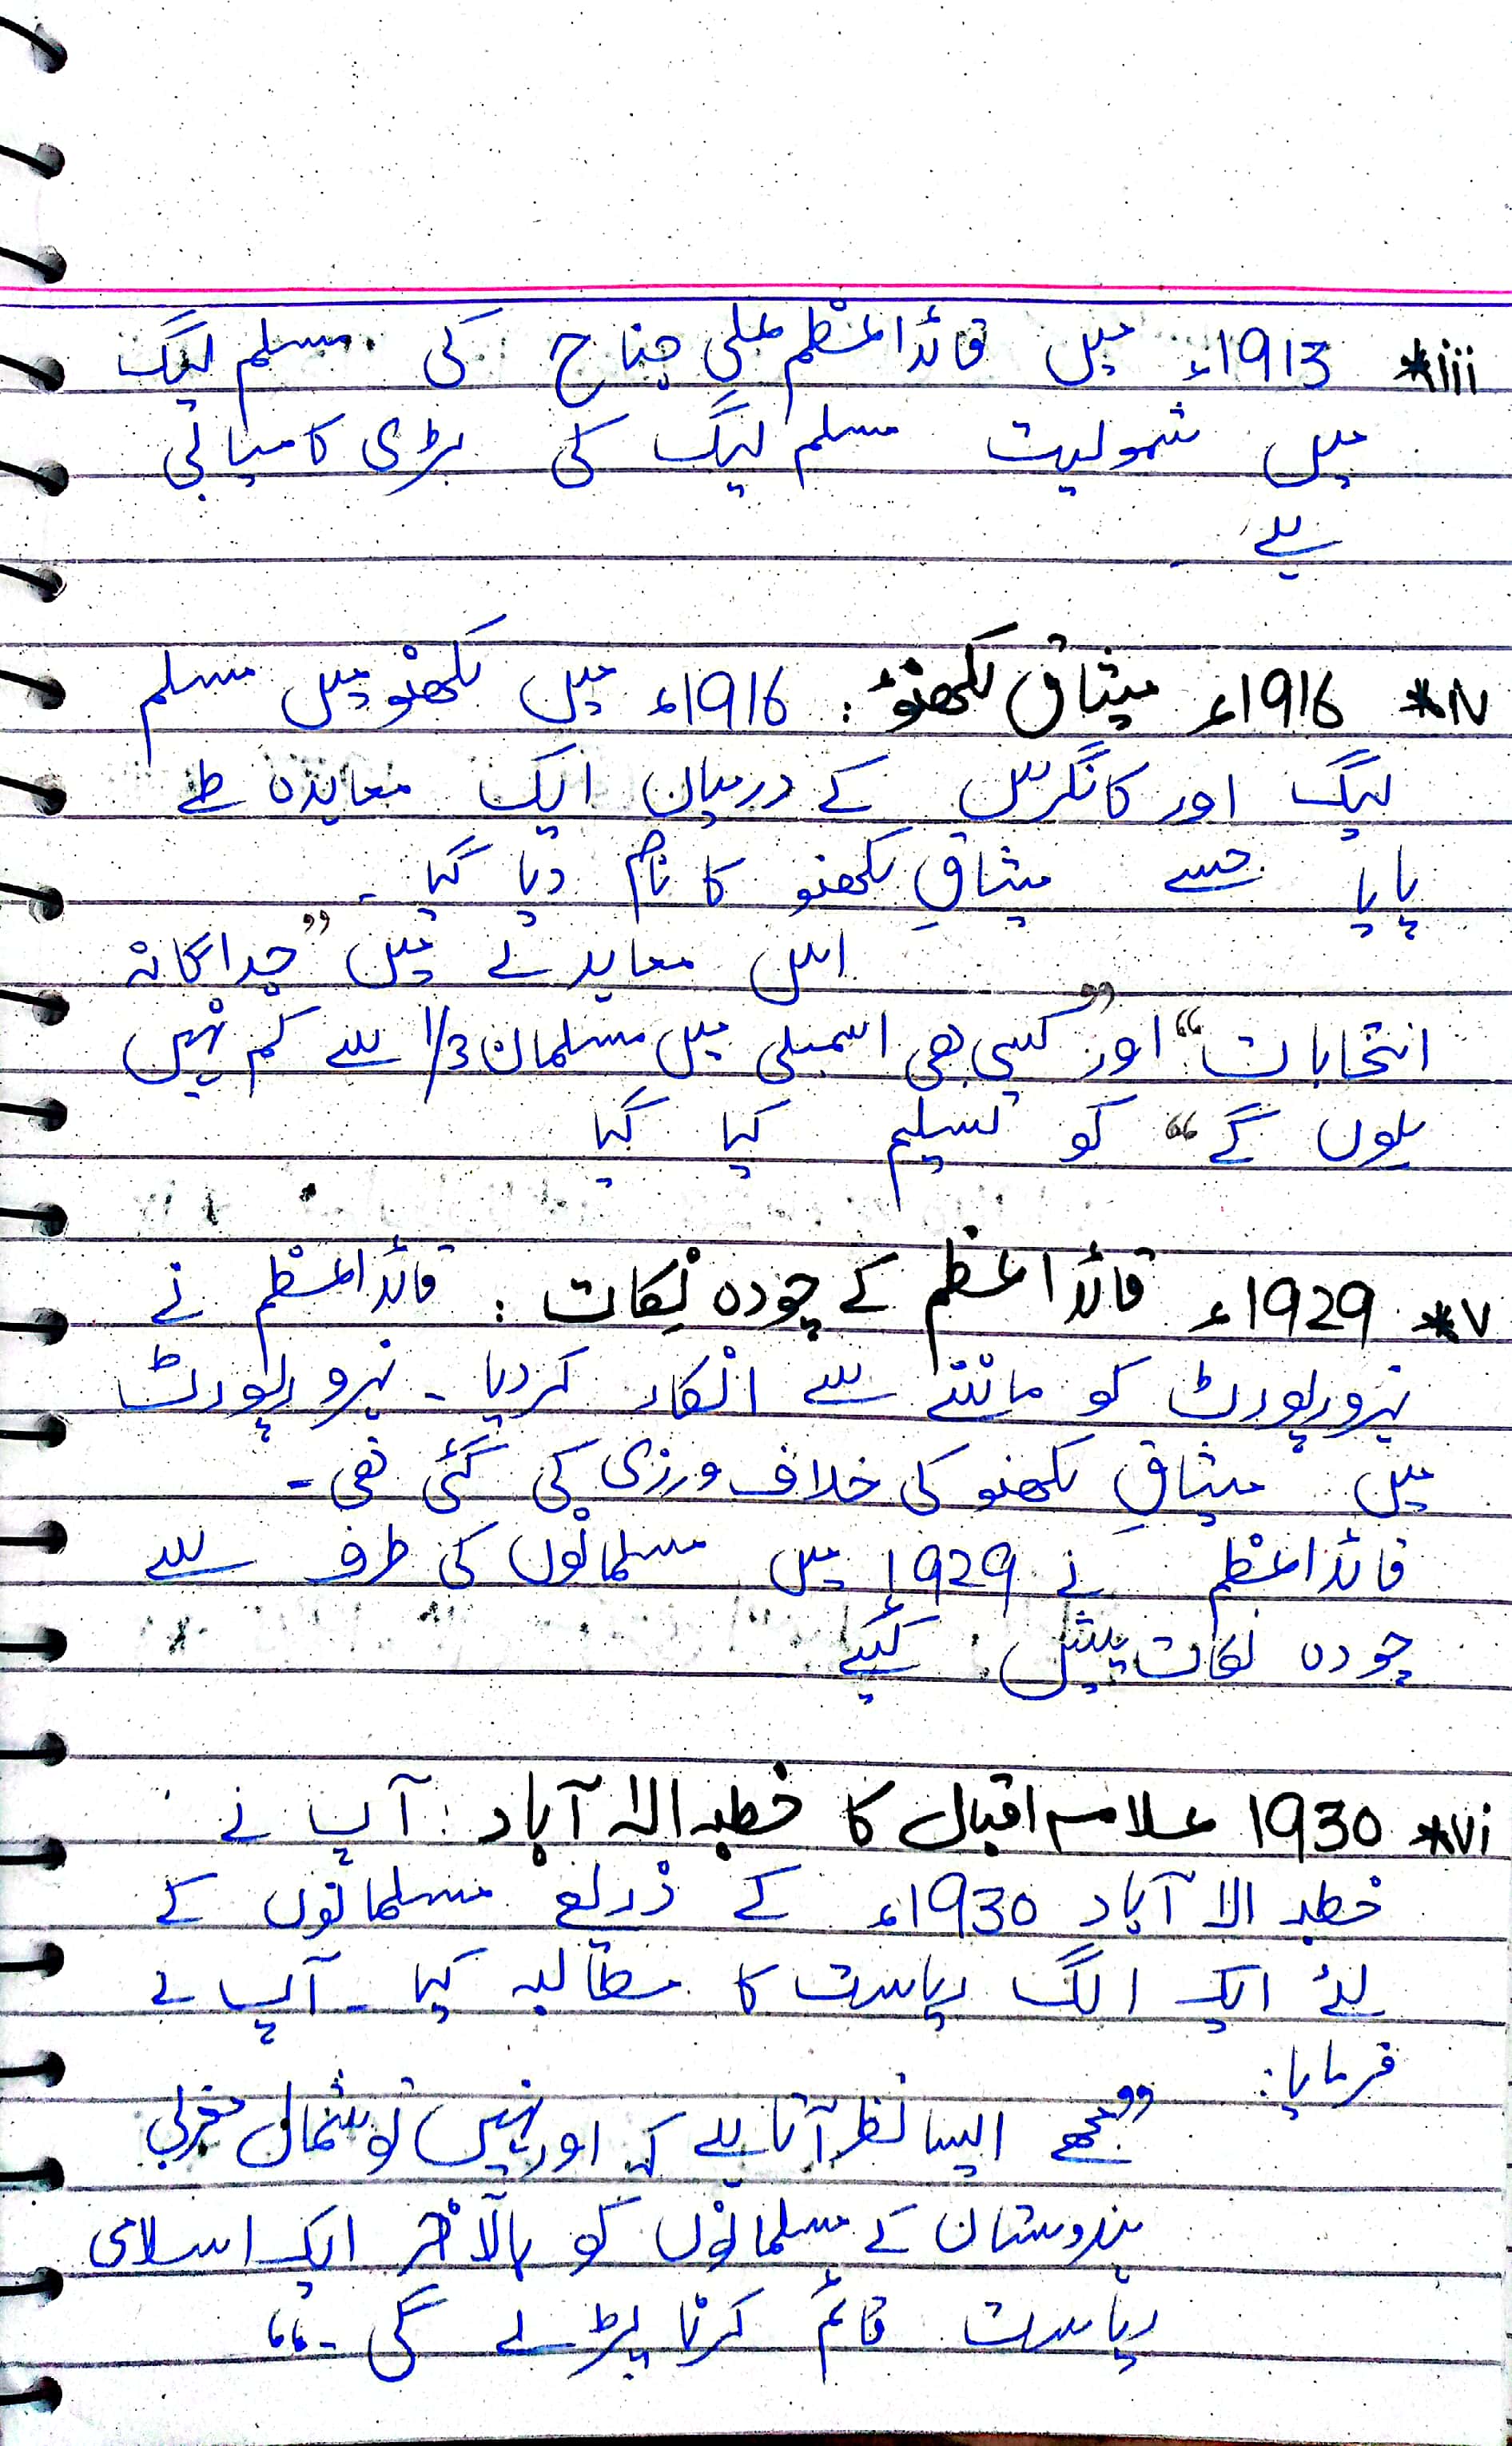 iii* 1913ء میں قائداعظم علی جناح کی مسلم لیگ
میں شمولیت مسلم لیگ کی بڑی کامیابی
ہے
iv* 1916ء میثاق لکھنؤ: 1916ء میں لکھنو میں مسلم
لیگ اور کانگرس کے درمیان ایک معاہدہ طے
پایا جسے میثاقِ لکھنو کا نام دیا گیا۔
اس معاہدے میں ”جداگانہ
انتخابات“ اور ”کسی بھی اسمبلی میں مسلمان 1/3 سے کم نہیں
ہوں گے“ کو تسلیم کیا گیا
v* 1929ء قائداعظم کے چودہ نکات: قائداعظم نے
نہرو رپورٹ کو ماننے سے انکار کردیا۔ نہرو رپورٹ
میں میثاقِ لکھنو کی خلاف ورزی کی گئی تھی۔
قائداعظم نے 1929 میں مسلمانوں کی طرف سے
چودہ نکات پیش کیے
vi* 1930 علامہ اقبال کا خطبہ الہ آباد: آپ نے
خطبہ الا آباد 1930ء کے ذریعے مسلمانوں کے
لئے ایک الگ ریاست کا مطالبہ کیا۔ آپ نے
فرمایا:
”مجھے ایسا نظر آتا ہے کہ اور نہیں تو شمال مغربی
ہندوستان کے مسلمانوں کو بالآخر ایک اسلامی
ریاست قائم کرنا پڑے گی۔“